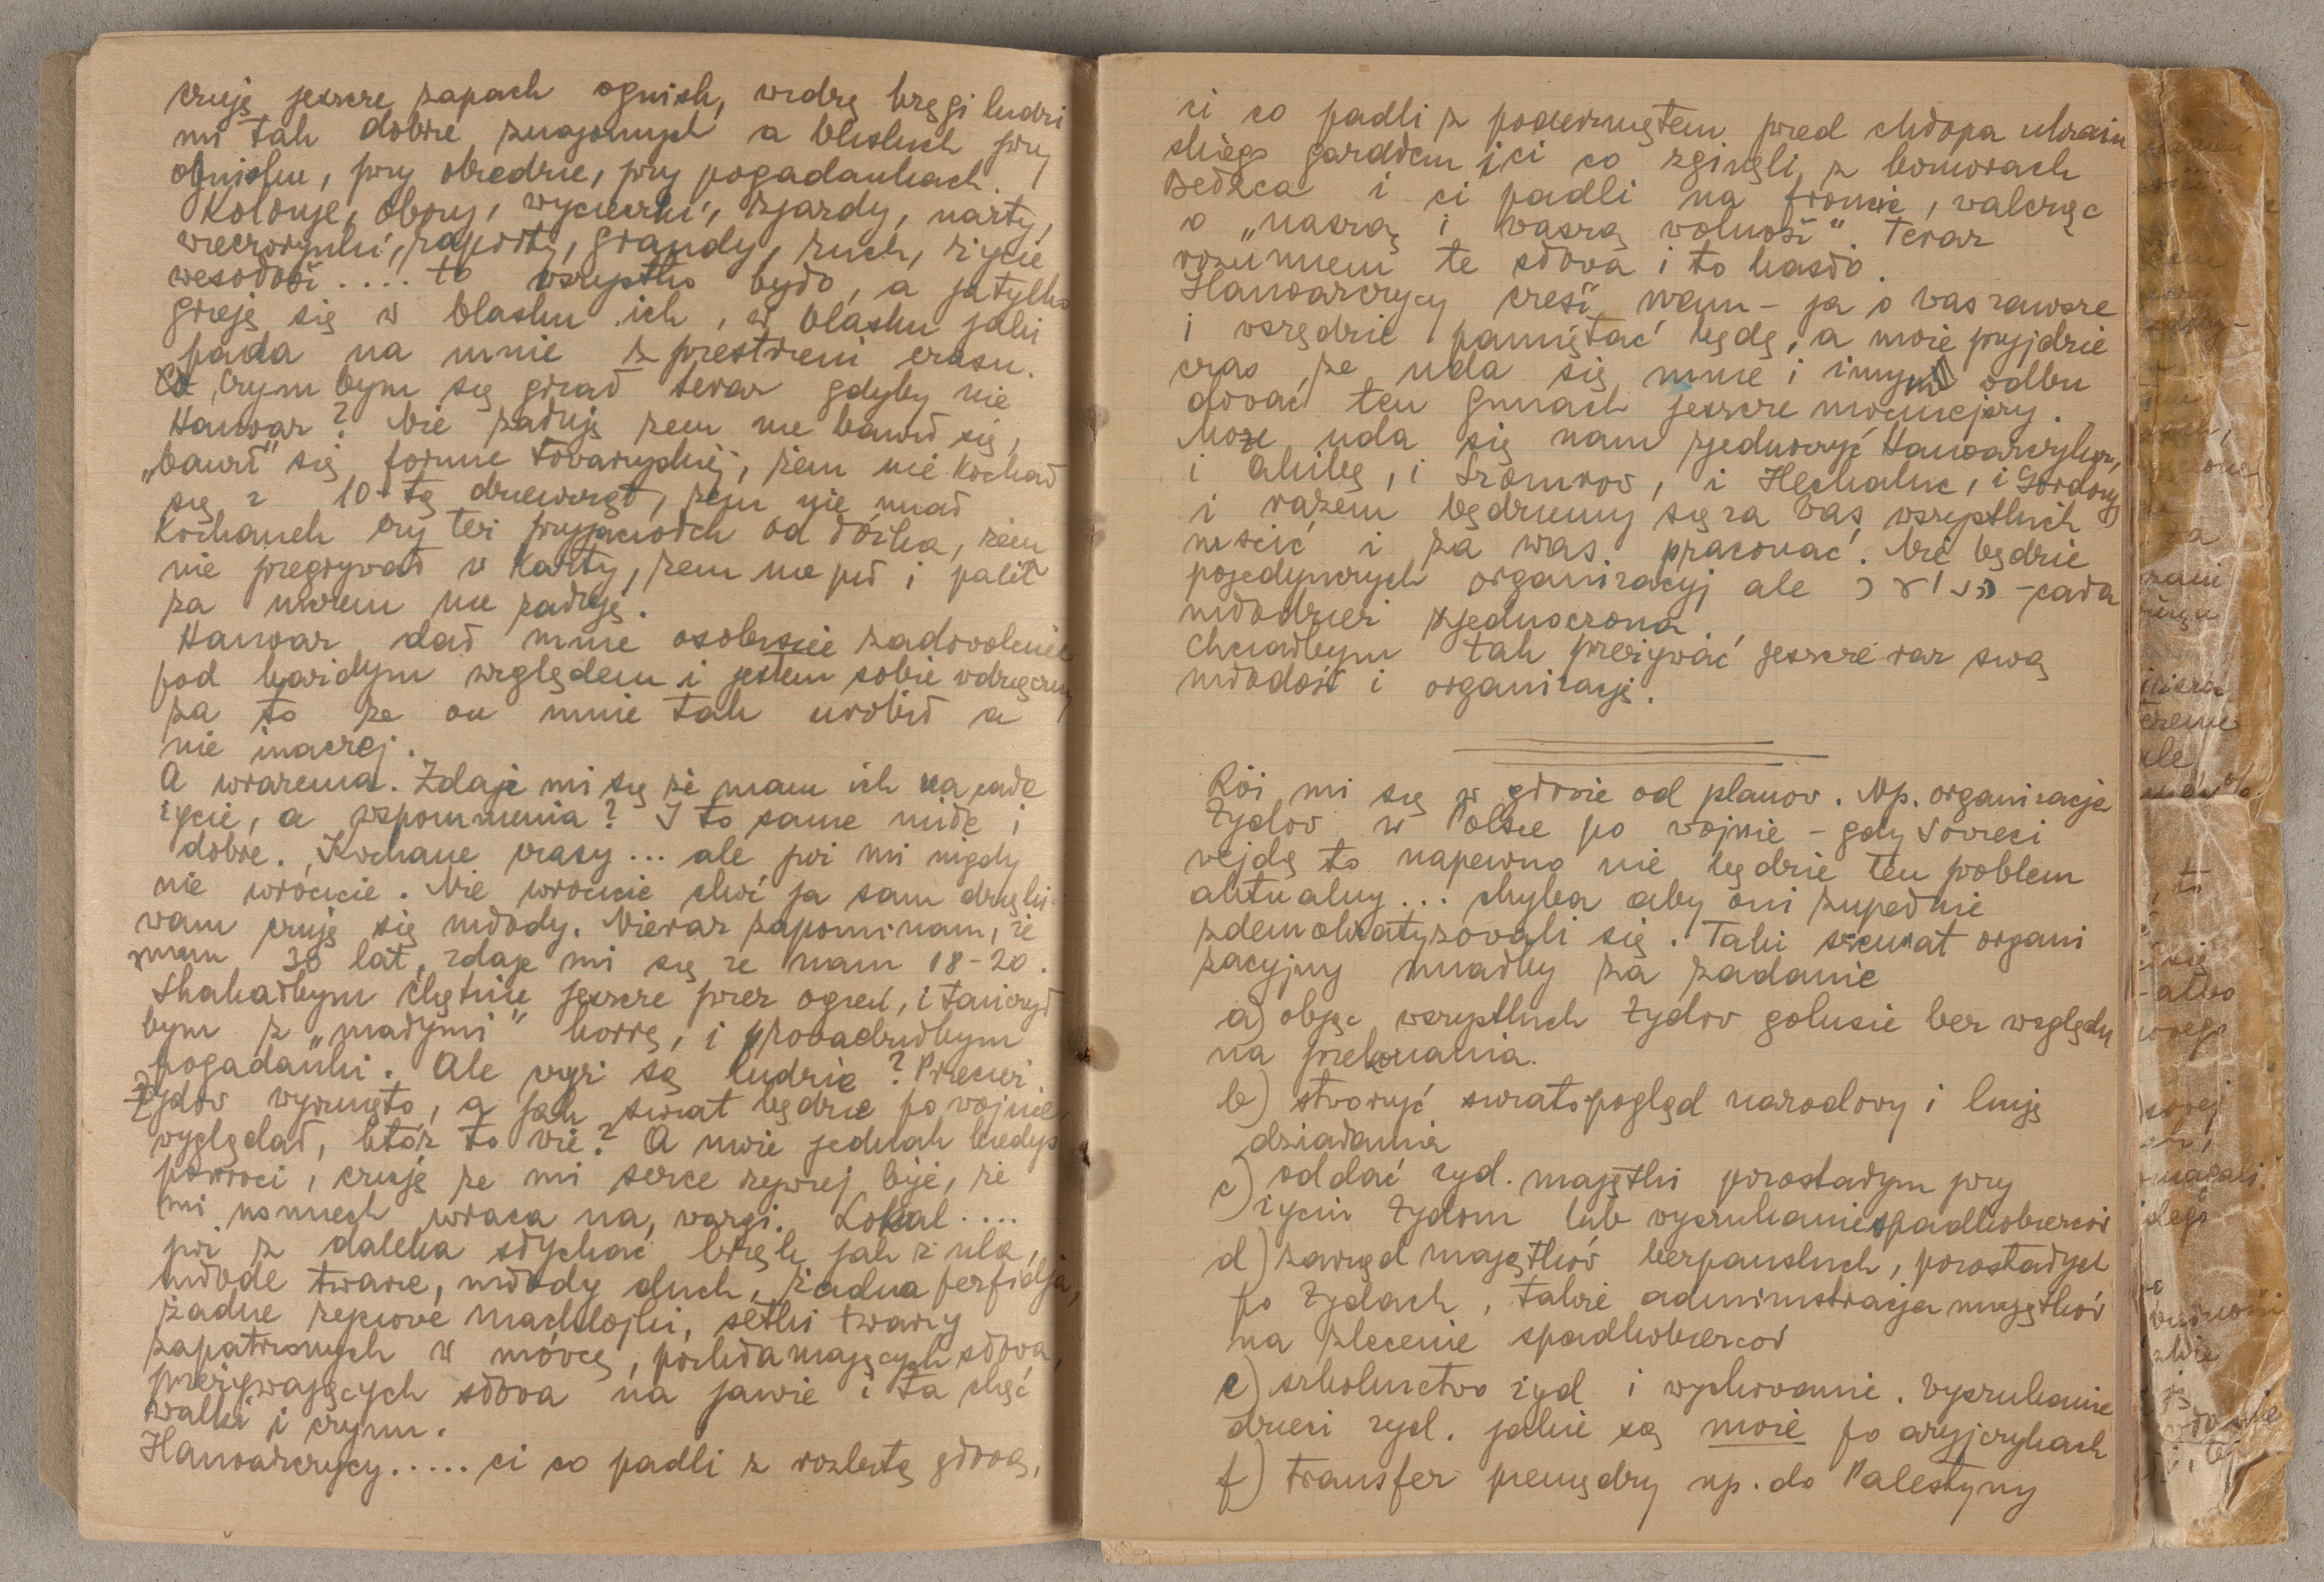 czuję jeszcze zapach ognisk, widzę kręgi ludzi
mi tak dobrze znajomych a bliskich przy
ognisku, przy obiedzie, przy pogadankach.
Kolonje, obozy, wycieczki, zjazdy, narty,
wieczorynki, raporty, grandy, ruch, życie
wesołość .... to wszystko było, a ja tylko
grzeję się w blasku ich, w blasku jaki
pada na mnie z przestrzeni czasu.
Czym bym się grzał teraz gdyby nie
Hanoar? Nie żałuję żem nie bawił się,
„bawił" się formie towarzyskiej, żem nie kochał
się z 10-tą dziewcząt, żem nie miał
kochanek czy też przyjaciółek od łóżka, żem
nie przegrywał w karty, żem nie pił i palił
za niczem nie żałuję.
Hanoar dał mnie osobiście zadowolenie
pod każdym względem i jestem sobie wdzięczny
za to że on mnie tak urobił a
nie inaczej.
A wrażenia. Zdaje mi się że mam ich na całe
życie, a wspomnienia? I to same miłe i
dobre. Kochane czasy ... ale już mi nigdy
nie wrócicie. Nie wrócicie choć ja sam dzięki
wam czuję się młody. Nieraz zapominam, że
mam 30 lat, zdaje mi się że mam 18-20.
Skakałbym chętnie jeszcze przez ogień, i tańczył
bym z „małymi" horrę, i prowadziłbym
pogadanki. Ale czyż są ludzie? Przecież
Żydów wyrżnięto, a jak świat będzie po wojnie
wyglądał, któż to wie? A nuże jednak kiedyś
powróci, czuję że mi serce żywiej bije, że
mi uśmiech wraca na wargi. Lokal ....
już z daleka słychać brzęk jak z ula,
młode twarze, młody duch, żadna perfidja,
żadne życiowe machlojki, setki twarzy
zapatrzonych w mówcę, pochłamających słowa,
przeżywających słowa na jawie i ta chęć
walki i czynu.
Hanoarczycy ..... ci co padli z rozbitą głową,
ci co padli z poderżniętem przed chłopa ukraiń
skiego gardłem i ci co zginęli z komorach
Bełżca i ci padli na froncie, walcząc
o „naszą i waszą wolność". Teraz
rozumiem te słowa i to hasło.
Hanoarczycy cześć wam - ja o was zawsze
i wszędzie pamiętać będę, a może przyjdzie
czas, że uda się mnie i innym odbu
dować ten gmach jeszcze mocniejszy.
Może uda się nam zjednoczyć Hanoarczyków,
i Akibę, i Szomrów, i Hechaluc, i Gordonję
i razem będziemy się za was wszystkich
mścić i za was pracować. Nie będzie
pojedynczych organizacyj ale נוער - cała
młodzież zjednoczona
Chciałbym tak przeżywać jeszcze raz swą
młodość i organizację.
Roi mi się w głowie od planów. Np. organizacje
Żydów w Polsce po wojnie - gdy Sowieci
wejdą to napewno nie będzie ten problem
aktualny ... chyba aby oni zupełnie
zdemokratyzowali się. Taki senat organi
zacyjny miałby za zadanie
a) objąć wszystkich Żydów golusie bez względu
na przekonania.
b) stworzyć światopogląd narodowy i linję
działania
c) oddać żyd. majątki pozostałym przy
życiu Żydom lub wyszukanie spadkobierców
d) zarząd majątków bezpańskich, pozostałych
po Żydach, także administracja majątków
na zlecenie spadkobierców
e) szkolnictwo żyd i wychowanie. Wyszukanie
dzieci żyd. jakie są może po aryjczykach
f) transfer pieniędzy np. do Palestyny